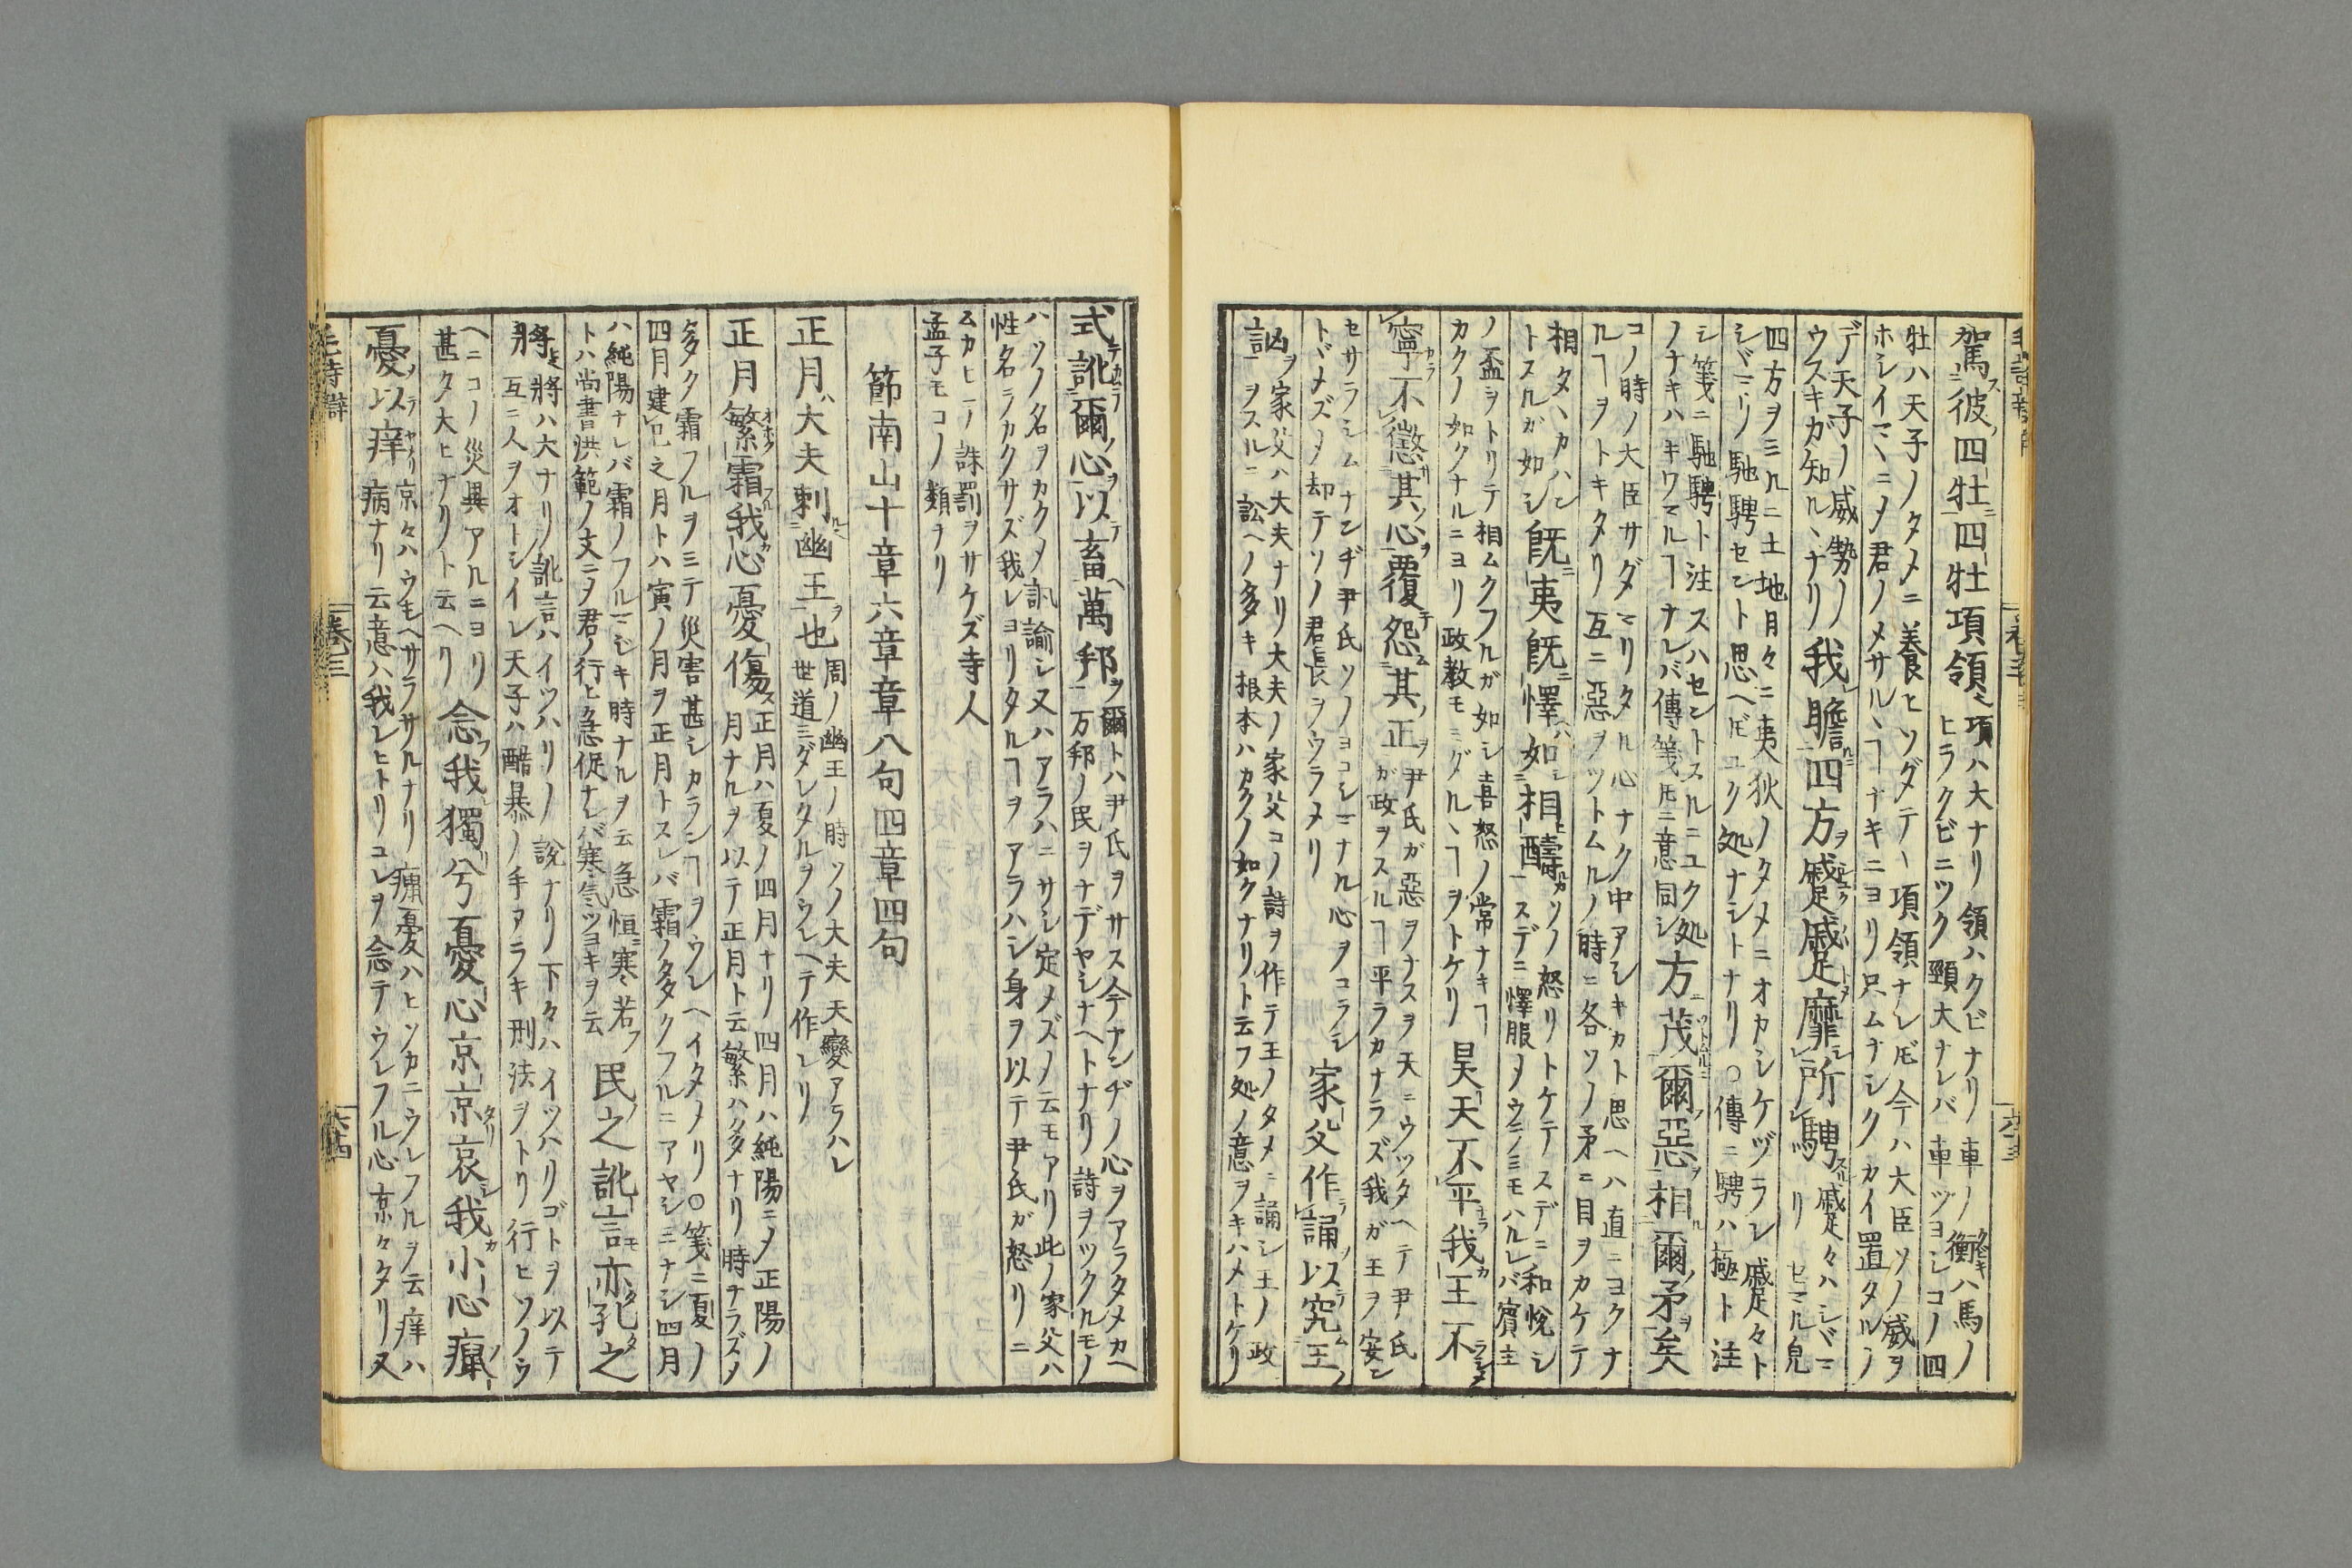 駕彼四牡四牡項領 項ハ大ナリ領ハクビナリ車ノ衡ハ馬ノ
ヒラクビニツク頸大ナレバ車ツヨシコノ四
牡ハ天子ノタメニ養ヒソダテヽ項領ナレ𪜈今ハ大臣ソノ威ヲ
ホシイマヽニメ君ノメサルヽヿナキニヨリ只ムナシクカイ置タルノ
デ天子ノ威勢ノ
ウスキカ知ルヽナリ
我瞻四方蹙蹙靡所騁 蹙々ハシヾマリ
セマル皃
四方ヲミルニ土地月々ニ夷狄ノタメニオカシケヅラレ蹙々ト
シヾマリ馳騁セント思ヘ𪜈ユク処ナシトナリ○傳ニ騁ハ極ト注
シ箋ニ馳騁ト注スハセントスルニユク処
ノナキハキワマルヿナレバ傳箋𪜈ニ意同シ
方茂爾惡相爾矛矣
コノ時ノ大臣サダマリタル心ナク中アシキカト思ヘハ直ニヨクナ
ルヿヲトキタリ互ニ惡ヲツトムルノ時ニ各ソノ矛ニ目ヲカケテ
相タヽカハン
トスルガ如シ
既夷既懌如相醻 ソノ怒リトケテスデニ和悅シ
スデニ懌服メウチノミモハルレバ賓主
ノ盃ヲトリテ相ムクフルガ如シ喜怒ノ常ナキヿ
カクノ如クナルニヨリ政教モミダルヽヿヲトケリ
昊天不平我王不
寧不懲其心覆怨其正 尹氏ガ惡ヲナスヲ天ニウツタヘテ尹氏
ガ政ヲスルヿ平ラカナラズ我ガ王ヲ安ン
セサラシムナンヂ尹氏ソノヨコシマナル心ヲコラシ
トヾメズメ却テソノ君長ヲウラメリ
家父作誦以究王
訩 家父ハ大夫ナリ大夫ノ家父コノ詩ヲ作テ王ノタメニ誦シ王ノ政
ヲスルニ訟ヘノ多キ根本ハカクノ如クナリト云フ処ノ意ヲキハメトケリ
式訛爾心以畜萬邦 爾トハ尹氏ヲサス今ナンヂノ心ヲアラタメカヘ
万邦ノ民ヲナデヤシナヘトナリ詩ヲツクルモノ
ハソノ名ヲカクメ訊諭シ又ハアラハニサシ定メズメ云モアリ此ノ家父ハ
性名ラカクサズ我レヨリタルヿヲアラハシ身ヲ以テ尹氏ガ怒リニ
ムカヒテ誅罰ヲサケズ寺人
孟子モコノ類ナリ
節南山十章六章章八句四章四句
正月大夫刺幽王也 周ノ幽王ノ時ソノ大夫天變アラハレ
世道ミダレタルヲウレヘテ作レリ
正月繁霜我心憂傷 正月ハ夏ノ四月ナリ四月ハ純陽ニメ正陽ノ
月ナルヲ以テ正月ト云繁ハ多ナリ時ナラズメ
多ク霜フルヲミテ災害甚シカランヿヲウレヘイタメリ○箋ニ夏ノ
四月建巳之月トハ寅ノ月ヲ正月トスレバ霜ノ多クフルニアヤシミナシ四月
ハ純陽ナレバ霜ノフルマジキ時ナルヲ云急恒寒若
トハ尚書洪範ノ文ニメ君ノ行ヒ急促ナレバ寒氣ツヨキヲ云
民之訛言亦孔之
將 將ハ大ナリ訛言ハイツハリノ說ナリ下々ハイツハリゴトヲ以テ
互ニ人ヲオトシイレ天子ハ酷暴ノ手アラキ刑法ヲトリ行ヒソノウ
ヘニコノ災異アルニヨリ
甚タ大ヒナリト云ヘリ
念我獨兮憂心京京哀我小心癙
憂以痒 京々ハウキヘサラサルナリ癙憂ハヒソカニウレフルヲ云痒ハ
病ナリ云意ハ我レヒトリコレヲ念テウレフル心京々タリ又
卷三